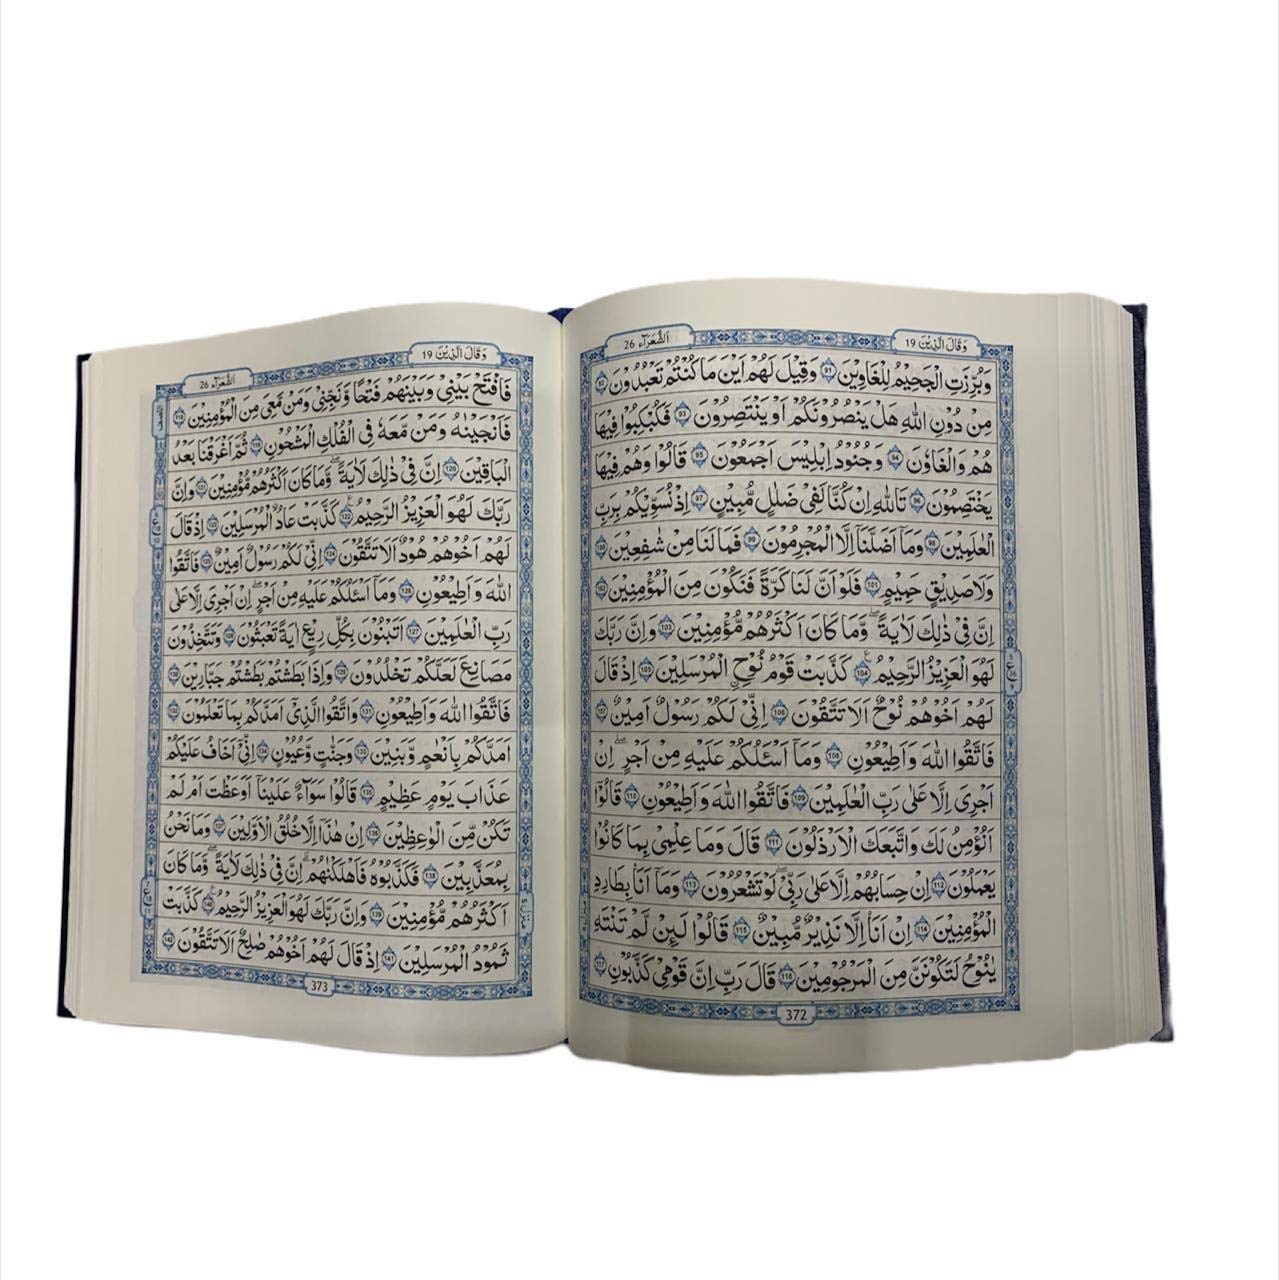 اَلشُّعَرَآء 26
وَقَالَ الَّذِيْنَ 19
وَبُرِّزَتِ الْجَحِيْمُ لِلْغَاوِيْنَ 91 وَقِيْلَ لَهُمْ اَيْنَ مَا كُنْتُمْ تَعْبُدُوْنَ 92
مِنْ دُوْنِ اللّٰهِ هَلْ يَنْصُرُوْنَكُمْ اَوْ يَنْتَصِرُوْنَ 93 فَكُبْكِبُوْا فِيْهَا
هُمْ وَالْغَاوٗنَ 94 وَجُنُوْدُ اِبْلِيْسَ اَجْمَعُوْنَ 95 قَالُوْا وَهُمْ فِيْهَا
يَخْتَصِمُوْنَ 96 تَاللّٰهِ اِنْ كُنَّا لَفِيْ ضَلٰلٍ مُّبِيْنٍ 97 اِذْ نُسَوِّيْكُمْ بِرَبِّ
الْعٰلَمِيْنَ 98 وَمَاۤ اَضَلَّنَاۤ اِلَّا الْمُجْرِمُوْنَ 99 فَمَا لَنَا مِنْ شٰفِعِيْنَ 100
وَلَا صَدِيْقٍ حَمِيْمٍ 101 فَلَوْ اَنَّ لَنَا كَرَّةً فَنَكُوْنَ مِنَ الْمُؤْمِنِيْنَ 102
اِنَّ فِيْ ذٰلِكَ لَاٰيَةً ؕ وَّمَا كَانَ اَكْثَرُهُمْ مُّؤْمِنِيْنَ 103 وَاِنَّ رَبَّكَ
لَهُوَ الْعَزِيْزُ الرَّحِيْمُ 104 كَذَّبَتْ قَوْمُ نُوْحِ ۨالْمُرْسَلِيْنَ 105 اِذْ قَالَ
لَهُمْ اَخُوْهُمْ نُوْحٌ اَلَا تَتَّقُوْنَ 106 اِنِّيْ لَكُمْ رَسُوْلٌ اَمِيْنٌ 107
فَاتَّقُوا اللّٰهَ وَاَطِيْعُوْنِ 108 وَمَاۤ اَسْـَٔلُكُمْ عَلَيْهِ مِنْ اَجْرٍ ۚ اِنْ
اَجْرِيَ اِلَّا عَلٰى رَبِّ الْعٰلَمِيْنَ 109 فَاتَّقُوا اللّٰهَ وَاَطِيْعُوْنِ 110 قَالُوْۤا
اَنُؤْمِنُ لَكَ وَاتَّبَعَكَ الْاَرْذَلُوْنَ 111 قَالَ وَمَا عِلْمِيْ بِمَا كَانُوْا
يَعْمَلُوْنَ 112 اِنْ حِسَابُهُمْ اِلَّا عَلٰى رَبِّيْ لَوْ تَشْعُرُوْنَ 113 وَمَاۤ اَنَا بِطَارِدِ
الْمُؤْمِنِيْنَ 114 اِنْ اَنَا اِلَّا نَذِيْرٌ مُّبِيْنٌ 115 قَالُوْا لَىِٕنْ لَّمْ تَنْتَهِ
يٰنُوْحُ لَتَكُوْنَنَّ مِنَ الْمَرْجُوْمِيْنَ 116 قَالَ رَبِّ اِنَّ قَوْمِيْ كَذَّبُوْنِ 117
372
وَقَالَ الَّذِيْنَ 19
اَلشُّعَرَآء 26
فَافْتَحْ بَيْنِيْ وَبَيْنَهُمْ فَتْحًا وَّنَجِّنِيْ وَمَنْ مَّعِيَ مِنَ الْمُؤْمِنِيْنَ 118
فَاَنْجَيْنٰهُ وَمَنْ مَّعَهٗ فِي الْفُلْكِ الْمَشْحُوْنِ 119 ثُمَّ اَغْرَقْنَا بَعْدُ
الْبَاقِيْنَ 120 اِنَّ فِيْ ذٰلِكَ لَاٰيَةً ؕ وَّمَا كَانَ اَكْثَرُهُمْ مُّؤْمِنِيْنَ 121 وَاِنَّ
رَبَّكَ لَهُوَ الْعَزِيْزُ الرَّحِيْمُ 122 كَذَّبَتْ عَادُ ۨالْمُرْسَلِيْنَ 123 اِذْ قَالَ
لَهُمْ اَخُوْهُمْ هُوْدٌ اَلَا تَتَّقُوْنَ 124 اِنِّيْ لَكُمْ رَسُوْلٌ اَمِيْنٌ 125 فَاتَّقُوا
اللّٰهَ وَاَطِيْعُوْنِ 126 وَمَاۤ اَسْـَٔلُكُمْ عَلَيْهِ مِنْ اَجْرٍ ۚ اِنْ اَجْرِيَ اِلَّا عَلٰى
رَبِّ الْعٰلَمِيْنَ 127 اَتَبْنُوْنَ بِكُلِّ رِيْعٍ اٰيَةً تَعْبَثُوْنَ 128 وَتَتَّخِذُوْنَ
مَصَانِعَ لَعَلَّكُمْ تَخْلُدُوْنَ 129 وَاِذَا بَطَشْتُمْ بَطَشْتُمْ جَبَّارِيْنَ 130
فَاتَّقُوا اللّٰهَ وَاَطِيْعُوْنِ 131 وَاتَّقُوا الَّذِيْۤ اَمَدَّكُمْ بِمَا تَعْلَمُوْنَ 132
اَمَدَّكُمْ بِاَنْعَامٍ وَّبَنِيْنَ 133 وَجَنّٰتٍ وَّعُيُوْنٍ 134 اِنِّيْۤ اَخَافُ عَلَيْكُمْ
عَذَابَ يَوْمٍ عَظِيْمٍ 135 قَالُوْا سَوَآءٌ عَلَيْنَاۤ اَوَعَظْتَ اَمْ لَمْ
تَكُنْ مِّنَ الْوٰعِظِيْنَ 136 اِنْ هٰذَاۤ اِلَّا خُلُقُ الْاَوَّلِيْنَ 137 وَمَا نَحْنُ
بِمُعَذَّبِيْنَ 138 فَكَذَّبُوْهُ فَاَهْلَكْنٰهُمْ ؕ اِنَّ فِيْ ذٰلِكَ لَاٰيَةً ؕ وَّمَا كَانَ
اَكْثَرُهُمْ مُّؤْمِنِيْنَ 139 وَاِنَّ رَبَّكَ لَهُوَ الْعَزِيْزُ الرَّحِيْمُ 140 كَذَّبَتْ
ثَمُوْدُ الْمُرْسَلِيْنَ 141 اِذْ قَالَ لَهُمْ اَخُوْهُمْ صٰلِحٌ اَلَا تَتَّقُوْنَ 142
373